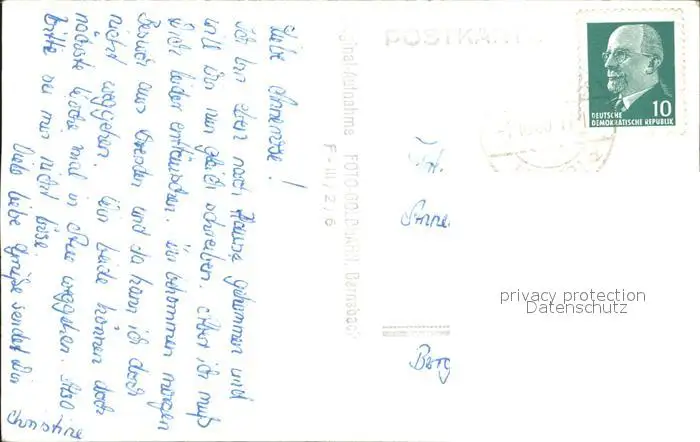 Liebe Annerose!
Ich bin eben nach Hause gekommen und
will Dir nun gleich schreiben. Aber ich muß
Dich leider enttäuschen. Wir bekommen morgen
Besuch aus Dresden und da kann ich doch
nicht weggehen. Wir beide können doch
nächste Woche mal in Ruhe weggehen. Also
bitte sei mir nicht böse.
Viele liebe Grüße sendet Dir
Christine
POSTKARTE
Original-Aufnahme FOTO-GOLDHAHN, Bernsbach
F-III/2/6
DEUTSCHE
DEMOKRATISCHE REPUBLIK
10
Frl.
Anne
Berg
privacy protection
Datenschutz